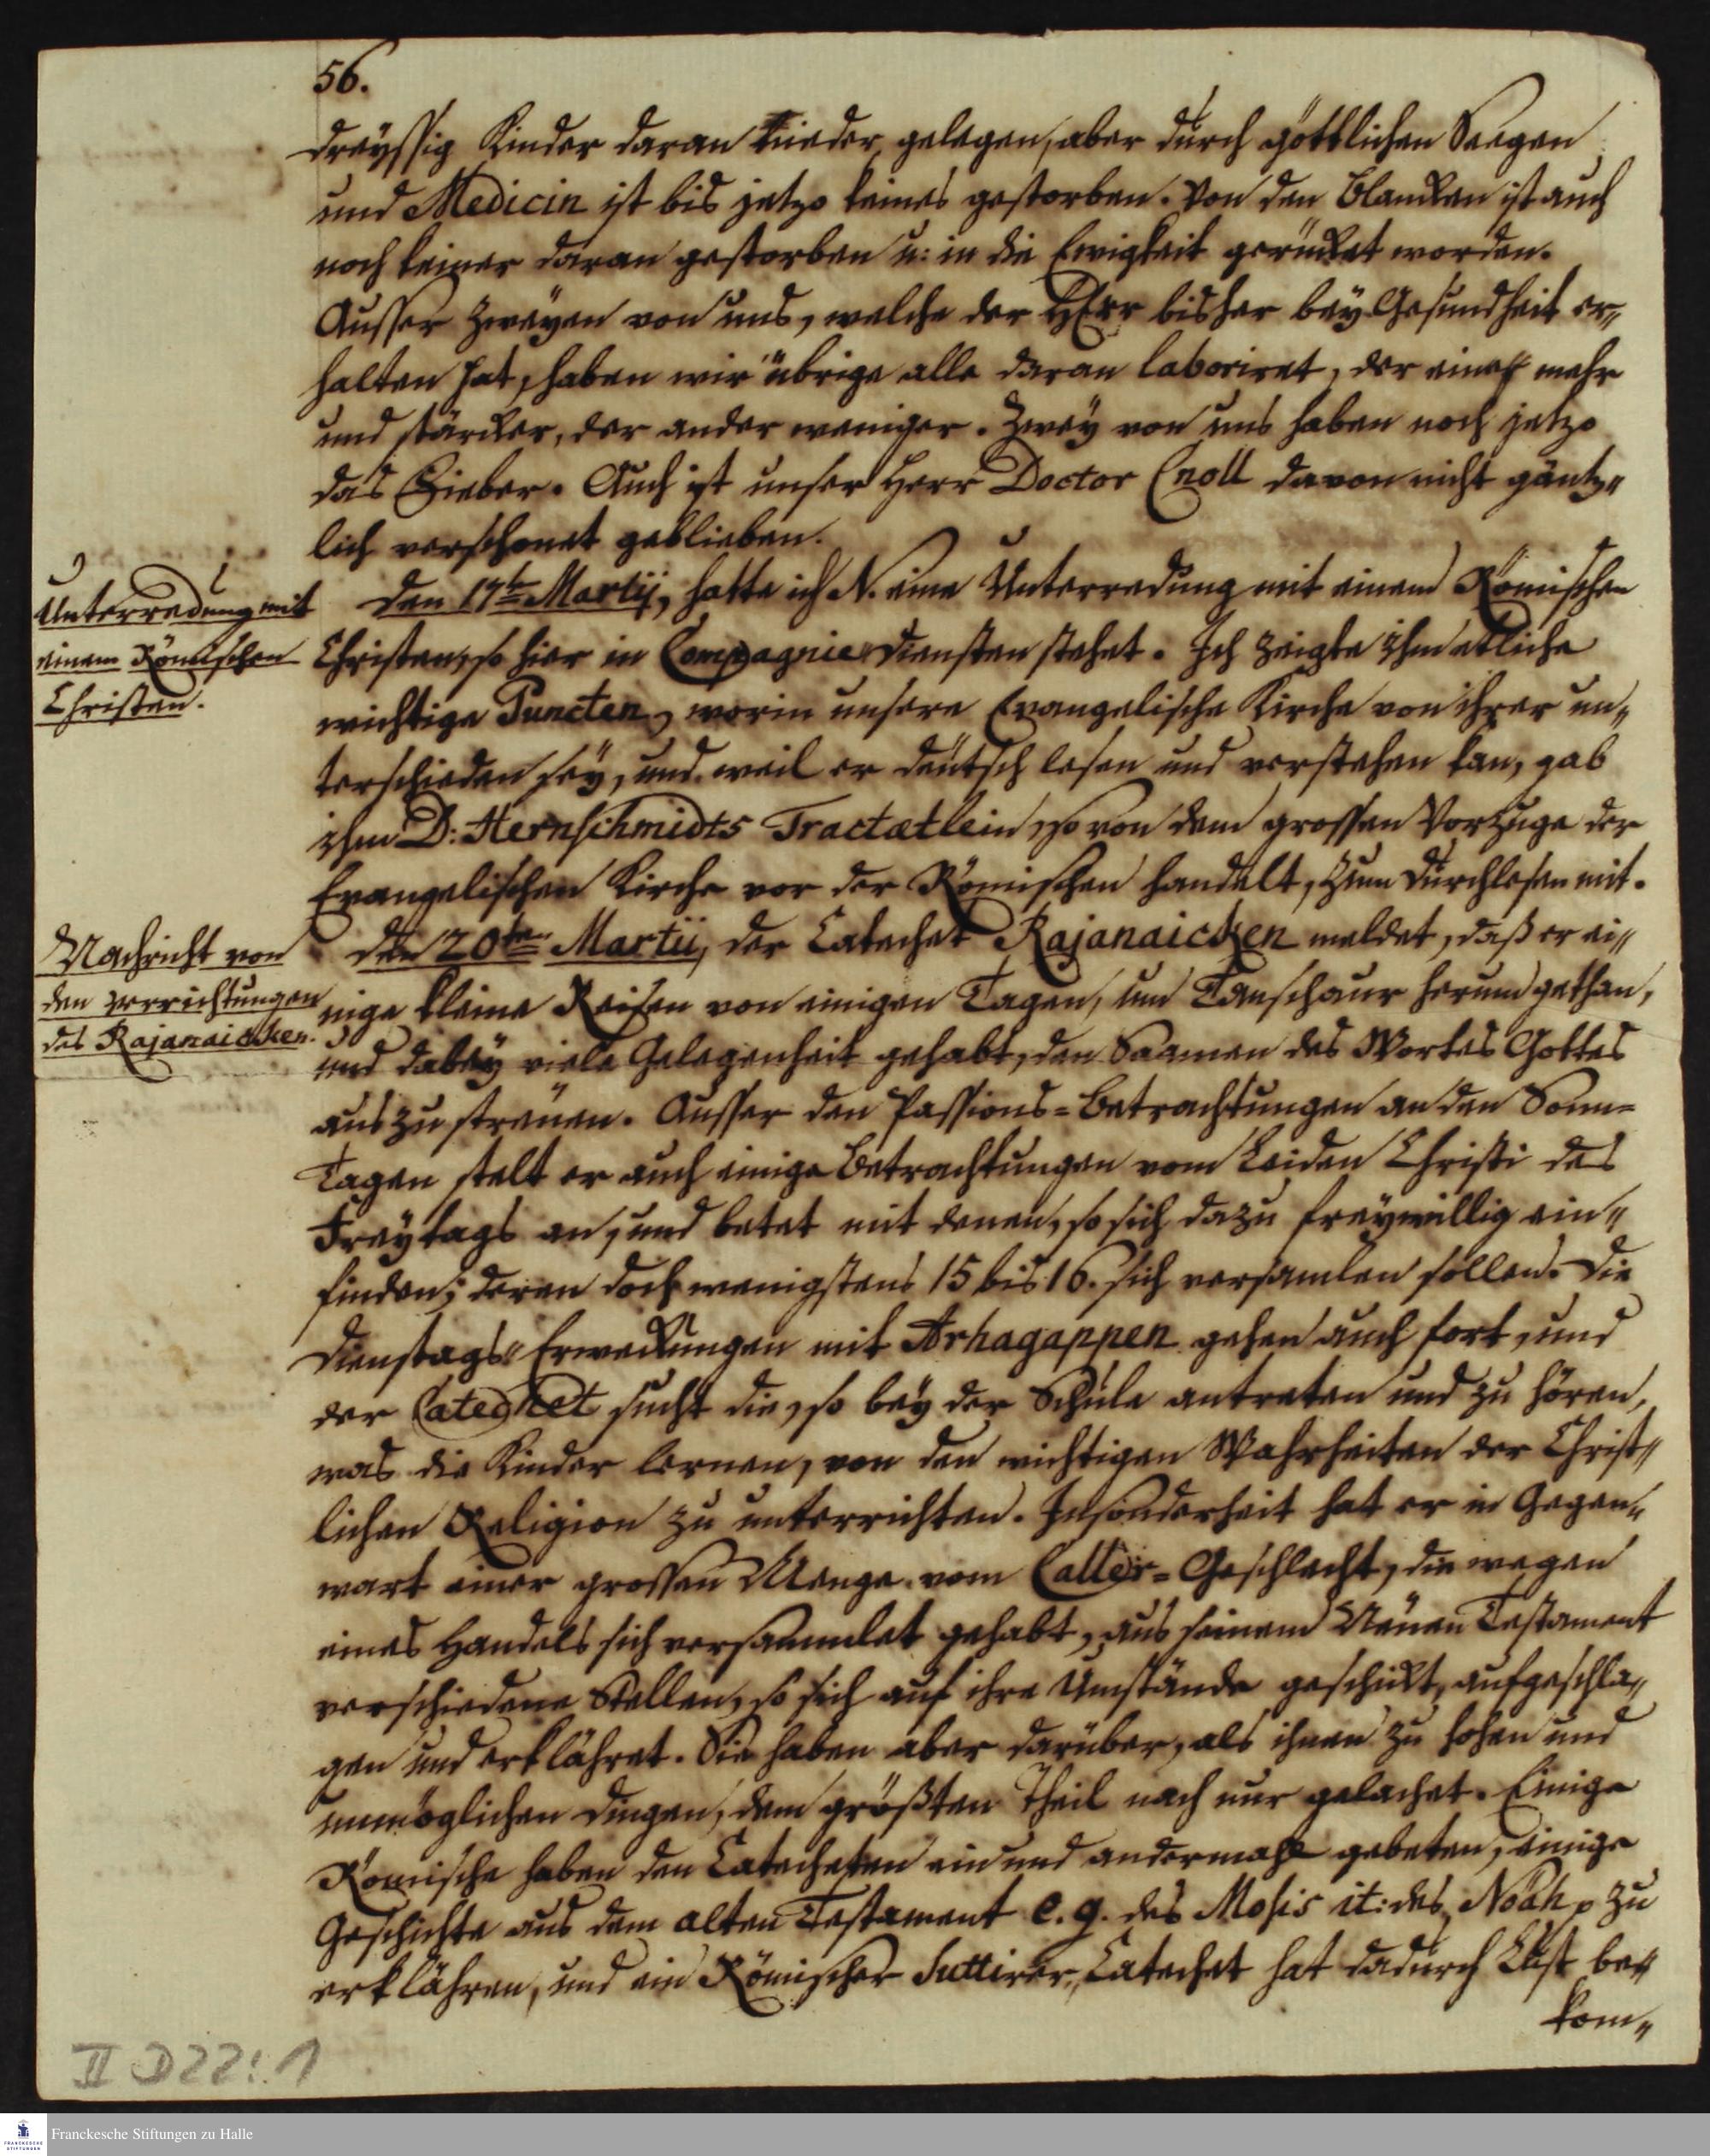 56.
dreyssig Kinder daran nieder gelegen, aber durch göttlichen Seegen
und Medicin ist bis jetzo keines gestorben. Von den Blancken ist auch
noch keiner daran gestorben u: in die Ewigkeit gerücket worden.
Ausser zweyen von uns, welche der HErr bisher bey Gesundheit er„
halten hat, haben wir übrige alle daran laboriret, der eine mehr
und stärcker, der ander weniger. Zwey von uns haben noch jetzo
das Fieber. Auch ist unser Herr Doctor Cnoll davon nicht gäntz„
lich verschonet geblieben.
Unterredung mit
einem Römischen
Christen.
Den 17te Martij, hatte ich N. eine Unterredung mit einem Römischen
Christen, so hier in Compagnie diensten stehet. Ich zeigte ihm etliche
wichtige Puncten, worin unsere Evangelische Kirche von ihrer un„
terschieden sey, und weil er deütsch lesen und verstehen kan, gab
ihm D: Hernschmidts Tractætlein, so von dem grossen Vorzuge der
Evangelischen Kirche vor der Römischen handelt, zum durchlesen mit.
Nachricht von
den verrichtungen
des Rajanaicken.
Den 20ten Martii, der Catechet Rajanaicken meldet, daß er ei„
nige kleine Reisen von einigen Tagen, um Tanschaur herum gethan,
und dabey viele Gelegenheit gehabt, den Saamen des Wortes Gottes
auszustreuen. Ausser den Passions=Betrachtungen an den Sonn=
Tagen stelt er auch einige Betrachtungen vom Leiden Christi des
Freytags an, und betet mit denen, so sich dazu freywillig ein„
finden; deren doch wenigstens 15 bis 16. sich versamlen sollen. Die
Dienstags„Erweckungen mit Arhagappen gehen auch fort, und
der Catechet sucht die, so bey der Schule antreten und zu hören,
was die Kinder lernen, von den wichtigen Wahrheiten der Christ„
lichen Religion zu unterrichten. Insonderheit hat er in Gegen„
wart einer grossen Menge vom Caller=Geschlecht, die wegen
eines Handels sich versammlet gehabt, aus seinem Neuen Testament
verschiedene Stellen, so sich auf ihre Umstände geschickt, aufgeschla„
gen und erklähret. Sie haben aber darüber, als ihnen zu hohen und
unmöglichen dingen, dem größten Theil nach nur gelachet. Einige
Römische haben den Catecheten ein und andermahl gebeten, einige
Geschichte aus dem alten Testament e. g. des Mosis it: des Noäh p zu
erklähren, und ein Römischer Suttirer, Catechet hat dadurch Lust be„
kom„
II D22:1
Franckesche Stiftungen zu Halle